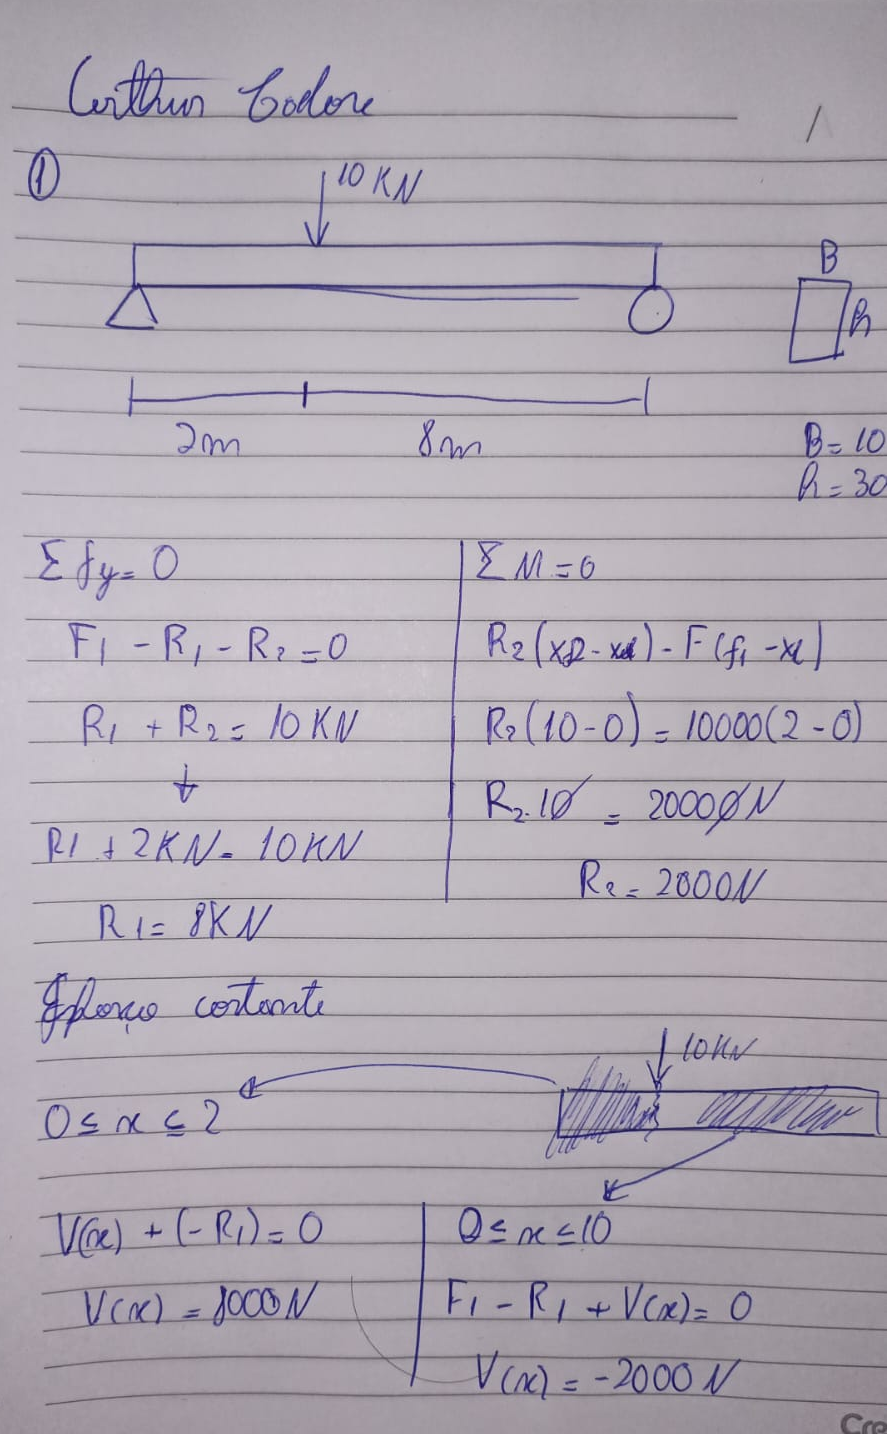 ①
10 KN
B
h
2m 8m
B=10
h=30
Σ fy=0
F₁ - R₁ - R₂=0
R₁ + R₂= 10 KN
↓
R1 + 2KN= 10KN
R1= 8KN
Σ M=0
R₂(10-0)=10000(2-0)
R₂.10 = 20000N
R₂=2000N
Esforço cortante
10KN
0≤x≤2
V(x) + (-R₁)=0
V(x) = 8000N
0≤x≤10
F₁ - R₁ + V(x)= 0
V(x) = -2000 N
Cre